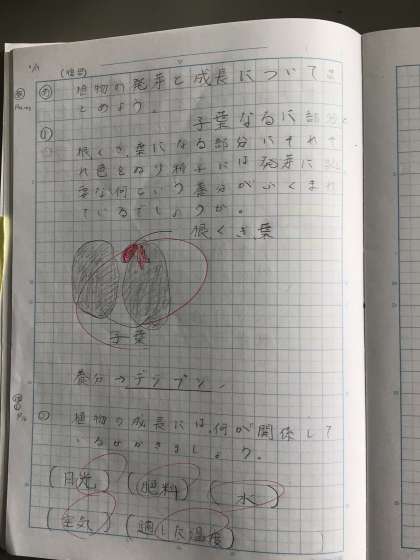 (復習)
植物の発芽と成長についてま
とめよう。
子葉なるに部分
① 根、くき、葉になる部分にそれぞ
れ色をぬり種子には発芽に必
要な何という養分がふくまれ
ているでしょうか。
根くき葉
子葉
養分→デンプン
② 植物の成長には、何が関係して
いるかかきましょう。
(日光) (肥料) (水)
(空気) (適した温度)